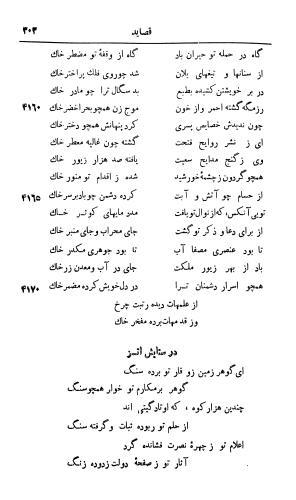 ۳۰۳
قصاید
گاه در حمله تو حیران باد گاه از وقفهٔ تو مضطر خاك
از سنانها و تیغهای یلان شد چوروی فلك براخترخاك
در بر خویشتن کشیده بطبع بد سگال ترا چو مادر خاك
رزمگه گشته احمر و از خون موج زن همچوبحراخضرخاك ۴۱۶۰
چون ندیدش خصایص پسری کرد پنهانش همچو دخترخاك
ای ز نشر روایح فتحت گشته چون غالیه معطر خاك
وی ز گنج مدایح سعیت یافته صد هزار زیور خاك
همچوگردون زچشمهٔ خورشید شده از اقدام تو منور خاك
از حسام چو آتش و آبت کرده دشمن چوبادبرسرخاك ۴۱۶۵
تویی آنکس، که از نوال تو یافت مدد مایهای کوثر خاك
از برای دعا و ذکر تو گشت جای محراب وجای منبر خاك
تا بود عنصری مصفا آب تا بود جوهری مکدر خاك
باد از بهر زیور ملکت جای در آب ومعدن زرخاك
همچو اسرار دشمنان ترا در دل خویش کرده مضمر خاك ۴۱۷۰
از علمهات دیده رتبت چرخ
وز قدمهات برده مفخر خاك
در ستایش اتسز
ای گوهر زمین ز وقار تو برده سنگ
گوهر برمکارم تو خوار همچوسنگ
چندین هزار کوه، که اوتادگیتی اند
از حلم تو ربوده ثبات و گرفته سنگ
اعلام تو ز چهرهٔ نصرت فشانده گرد
آثار تو ز صفحهٔ دولت زدوده زنگ